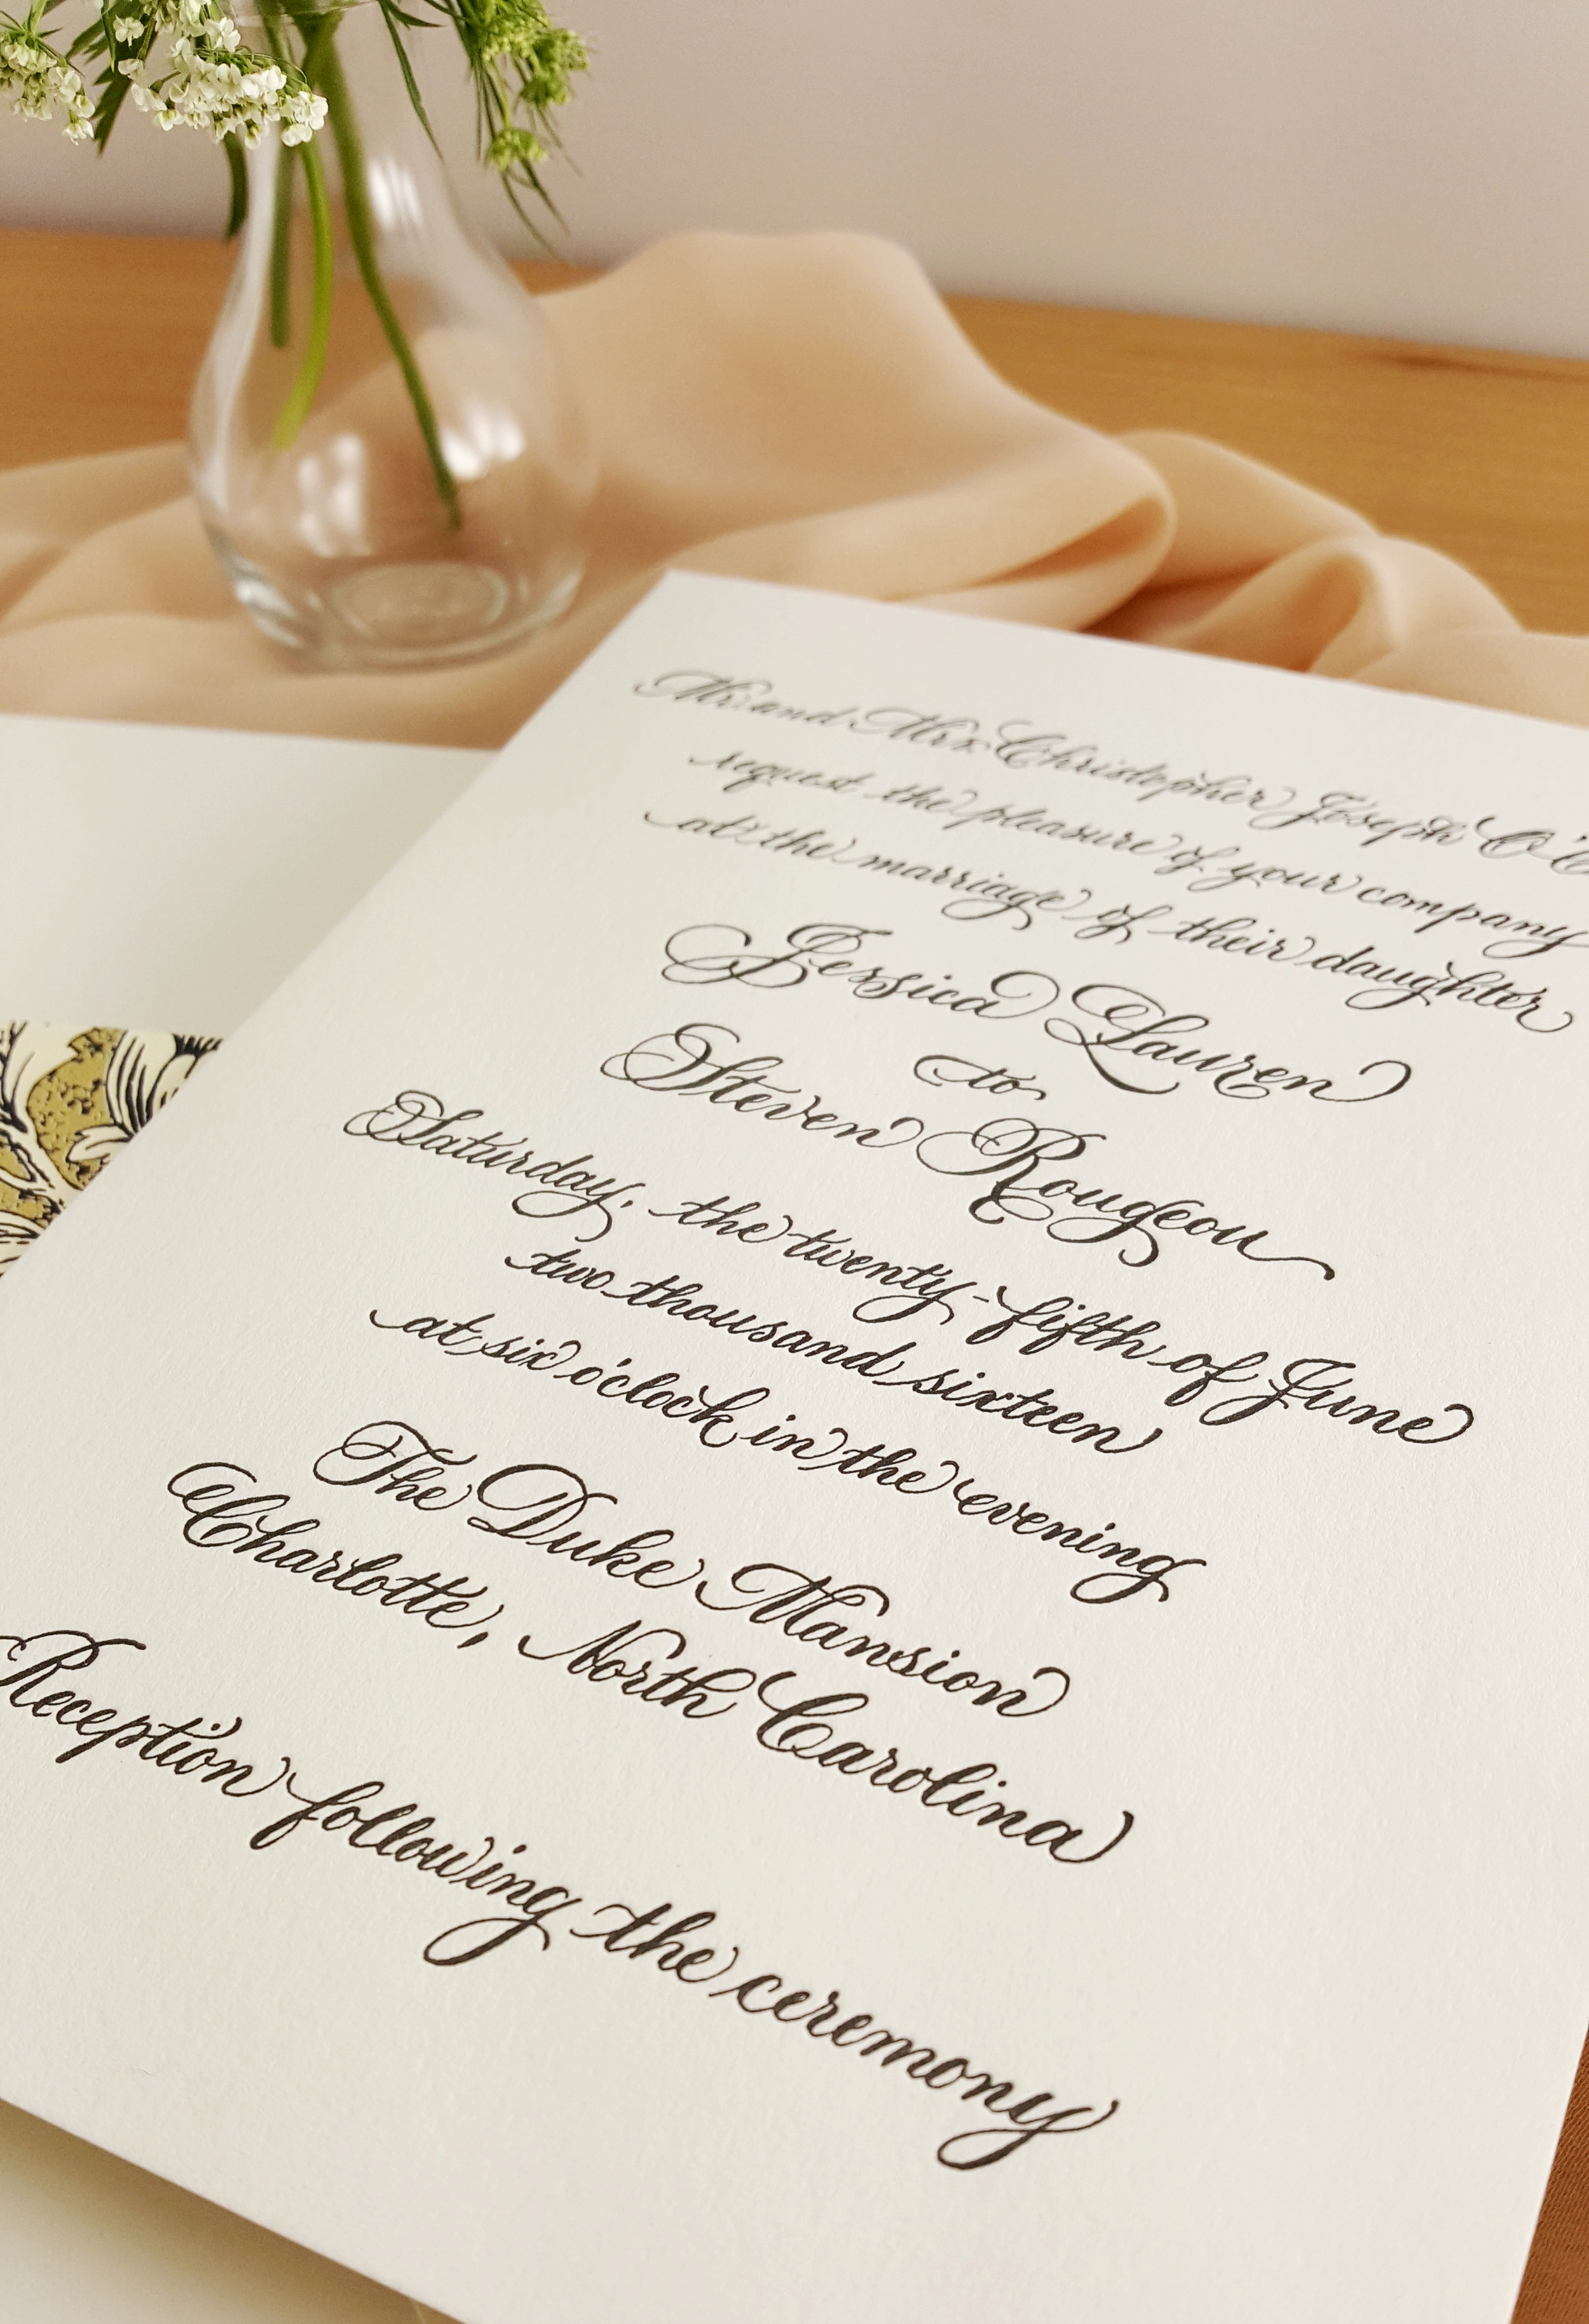 Mr. and Mrs. Christopher Joseph
request the pleasure of your company
at the marriage of their daughter
Jessica Lauren
to
Steven Rougeou
Saturday, the twenty-fifth of June
two thousand sixteen
at six o'clock in the evening
The Duke Mansion
Charlotte, North Carolina
Reception following the ceremony